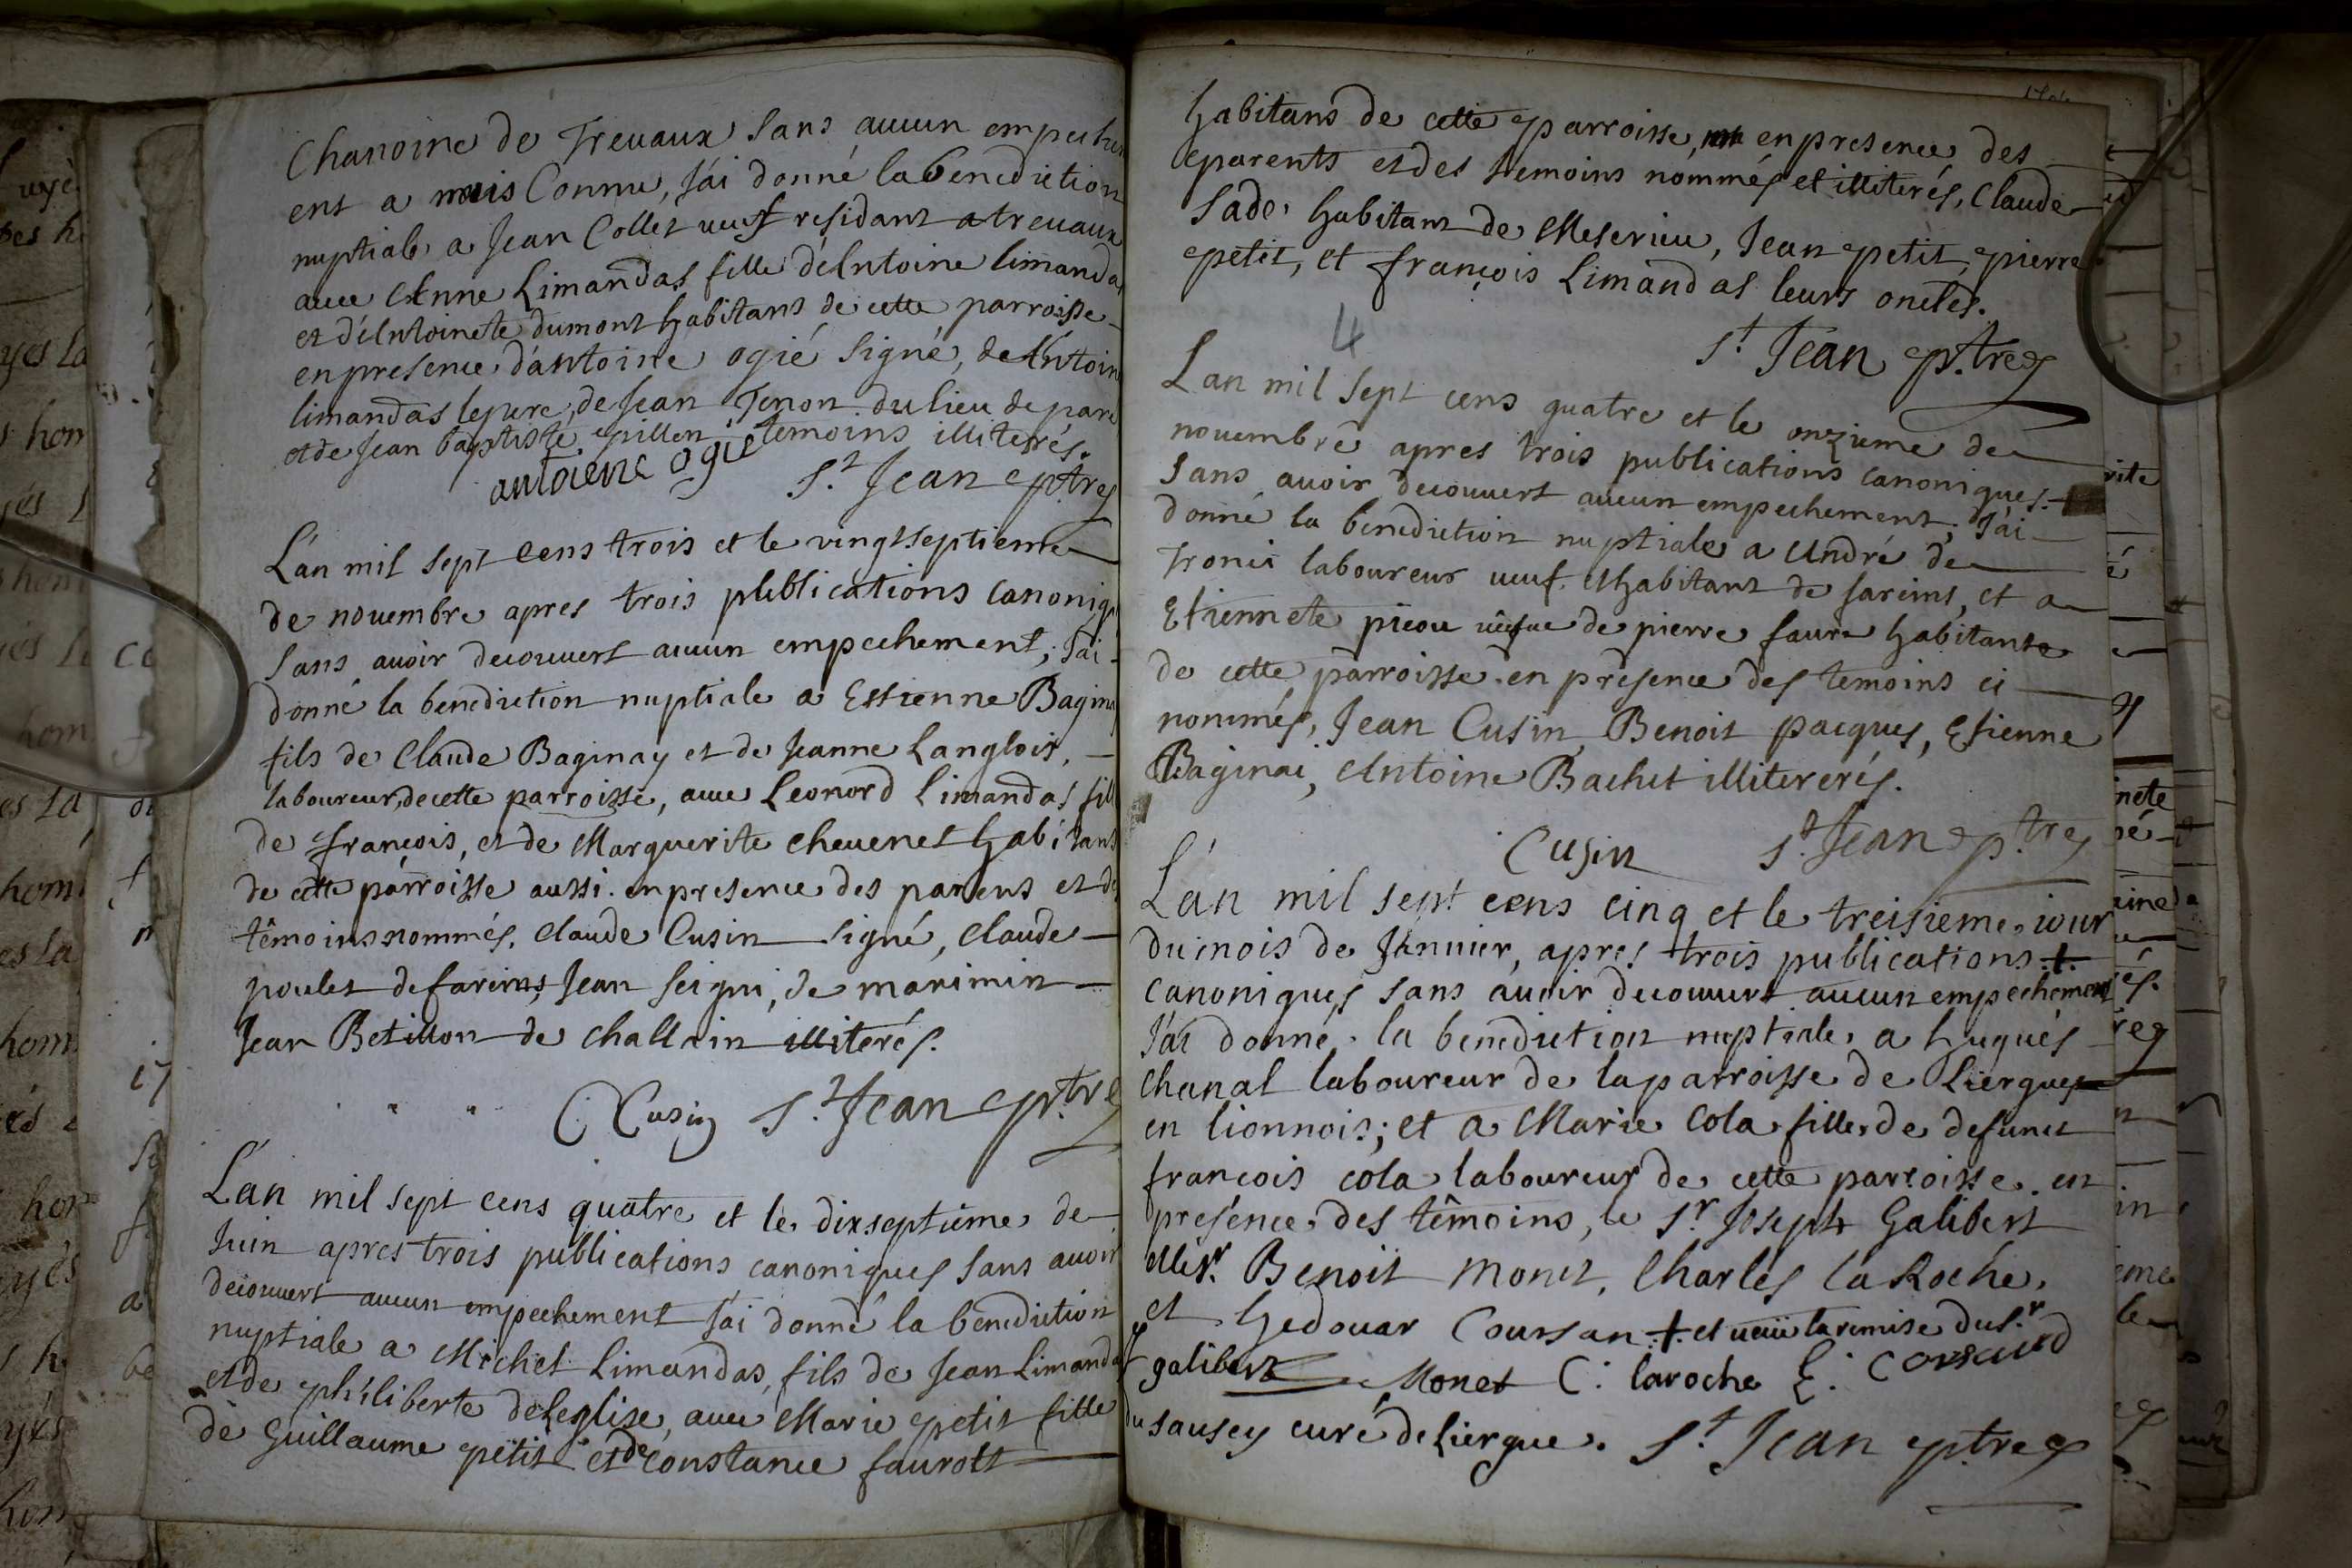 Chanoine de Trevaux sans aucun empeche
ent a mois Connu, J'ai donné la benediction
nuptiale a Jean Collet veuf residant a trevaux
avec Anne Limandas fille d'Antoine limanda
et d'Antoinete dumont habitans de cette parroisse
en presence d'antoine ogié signé, de Antoin
limandas le pere, de Jean Tenon du lieu de par
et de Jean baptiste pillon temoins illiterés.
antoiene ogié St. Jean ptre
L'an mil sept cens trois et le vingt septieme
de novembre apres trois publications canoniq
sans avoir decouvert aucun empechement, J'ai
donné la benediction nuptiale a Estienne Bagina
fils de Claude Baginay et de Jeanne Langlois,
laboureur, de cette parroisse, avec Leonord Limandas fill
de françois, et de Marguerite chevenet habitans
de cette parroisse aussi en presence des parens et de
têmoins nommés. Claude Cusin signé, Claude
poulet de fareins, Jean seigni, de marimin
Jean Betillon de challein illiterés.
C Cusin St. Jean ptre
L'an mil sept cens quatre et le dixseptième de
Juin apres trois publications canoniques sans avoir
decouvert aucun empechement J'ai donné la benediction
nuptiale a Michel Limandas, fils de Jean Limandas
et de philiberte deleglise, avec Marie petit fille
de Guillaume petit et de constance faurott
habitans de cette parroisse, en presence des
parents et des temoins nommés et illiterés, Claude
Sade habitant de Meserieu, Jean petit, pierre
petit, et françois Limandas leurs oncles.
St. Jean ptre
4
L an mil sept cens quatre et le onzieme de
novembre apres trois publications canoniques
sans avoir decouvert aucun empechement, J'ai
donné la benediction nuptiale a André de
tronci laboureur veuf habitant de fareins, et a
Etiennete picou vefve de pierre faure habitante
de cette parroisse en presence des temoins ci
nommés, Jean Cusin, Benoit pacques, Etienne
Baginai, Antoine Bachet illitererés.
Cusin St. Jean ptre
L'an mil sept cens cinq et le treisieme iour
du mois de Janvier, apres trois publications +
canoniques sans avoir decouvert aucun empechement
J'ai donné la benediction nuptiale a hugues
chanal laboureur de la parroisse de Liergues
en lionnois; et a Marie cola fille de defunct
francois cola laboureur de cette parroisse en
presence des têmoins, le Sr. Joseph Galibert
Mesr. Benoit monet, Charles la Roche,
et hedouar Coursan + et veüe la remise du Sr
galibert Monet C. laroche E. Corsand
du sausey curé de Liergue. St. Jean ptre